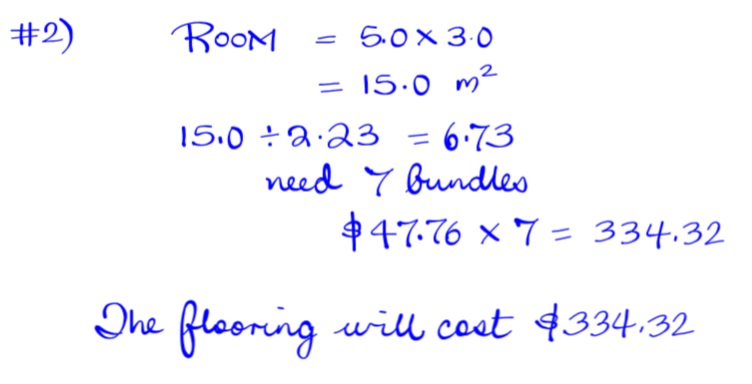 #2) ROOM = 5.0 × 3.0
= 15.0 m²
15.0 ÷ 2.23 = 6.73
need 7 bundles
$47.76 × 7 = 334.32
The flooring will cost $334.32